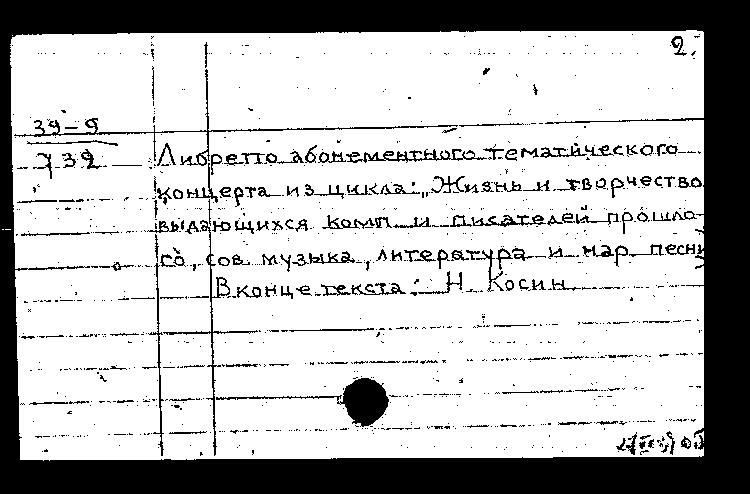 2.
39-9
732
Либретто абонементного тематического
концерта из цикла: „Жизнь и творчество
выдающихся комп. и писателей прошло-
го, сов. музыка, литература и нар. песни
В конце текста: Н. Косин.